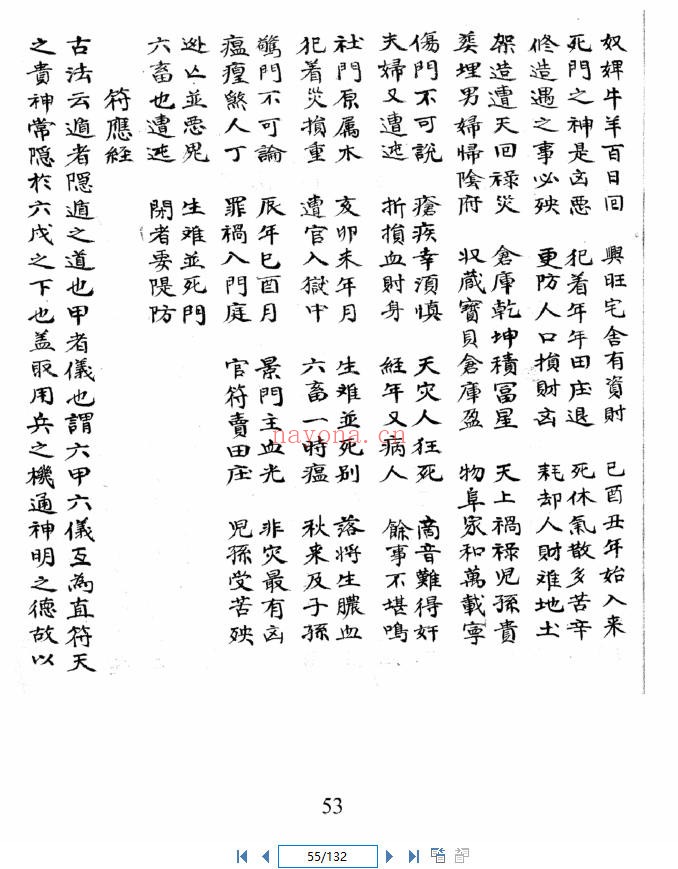 奴婢牛羊百日回 興旺宅舍有資財 巳酉丑年始入来
死門之神是凶悪 犯着年年田庄退 死休氣散多苦辛
修造遇之事必殃 更防人口損財凶 耗却人財难地土
架造遭天回禄災 倉庫乾坤積冨星 天上禍禄児孫貴
葬埋男婦帰陰府 収蔵寳貝倉庫盈 物阜家和萬載寧
傷門不可説 瘡疾幸須慎 天灾人狂死 啇音難得奸
夫婦又遭迍 折損血財身 經年又病人 餘事不堪鳴
杜門原属水 亥卯未年月 生难並死别 落将生膿血
犯着災損重 遭官入獄中 六畜一時瘟 秋来及子孫
驚門不可論 辰年巳酉月 景門主血光 非灾最有凶
瘟瘟煞人丁 罪禍入門庭 官符賣田庄 児孫受苦殃
逃亡並悪死 生难並死門
六畜也遭迍 閉者要隄防
符應経
古法云遁者隠遁之道也甲者儀也謂六甲六儀互為直符天
之貴神常隠於六戊之下也盖取用兵之機通神明之德故以
nayona.cn
53
55/132